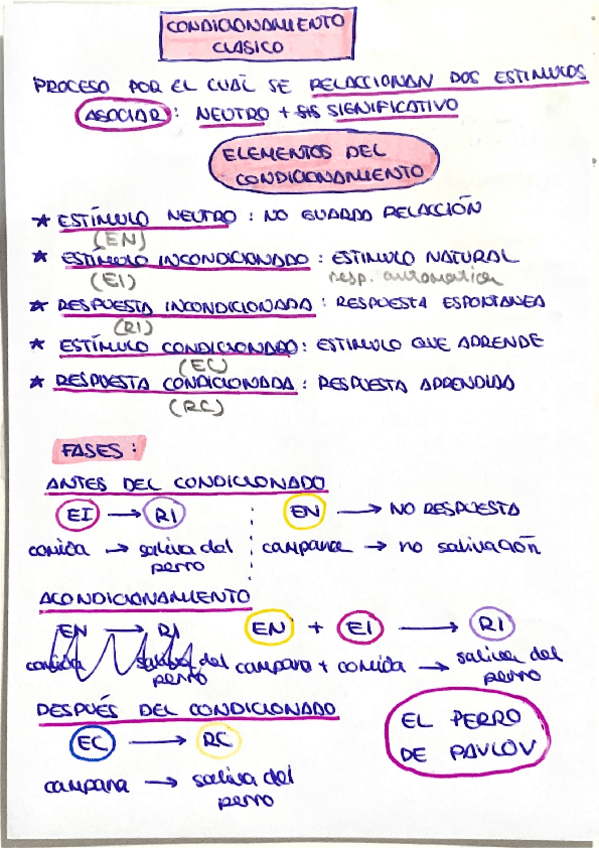 CONDICIONAMIENTO
CLASICO
PROCESO POR EL CUAL SE RELACCIONAN DOS ESTIMULOS
ASOCIAR: NEUTRO + SIGNIFICATIVO
ELEMENTOS DEL
CONDICIONAMIENTO
* ESTÍMULO NEUTRO: NO GUARDA RELACCIÓN
(EN)
* ESTÍMULO INCONDICIONADO: ESTIMULO NATURAL
(EI) resp. automatica
* RESPUESTA INCONDICIONADA: RESPUESTA ESPONTANEA
(RI)
* ESTÍMULO CONDICIONADO: ESTIMULO QUE APRENDE
(EC)
* RESPUESTA CONDICIONADA: RESPUESTA APRENDIDA
(RC)
FASES:
ANTES DEL CONDICIONADO
EI → RI
comida → saliva del
perro
EN → NO RESPUESTA
campana → no salivación
ACONDICIONAMIENTO
EN → RI
comida saliva del
perro
EN + EI → RI
campana + comida → saliva del
perro
DESPUÉS DEL CONDICIONADO
EC → RC
campana → saliva del
perro
EL PERRO
DE PAVLOV